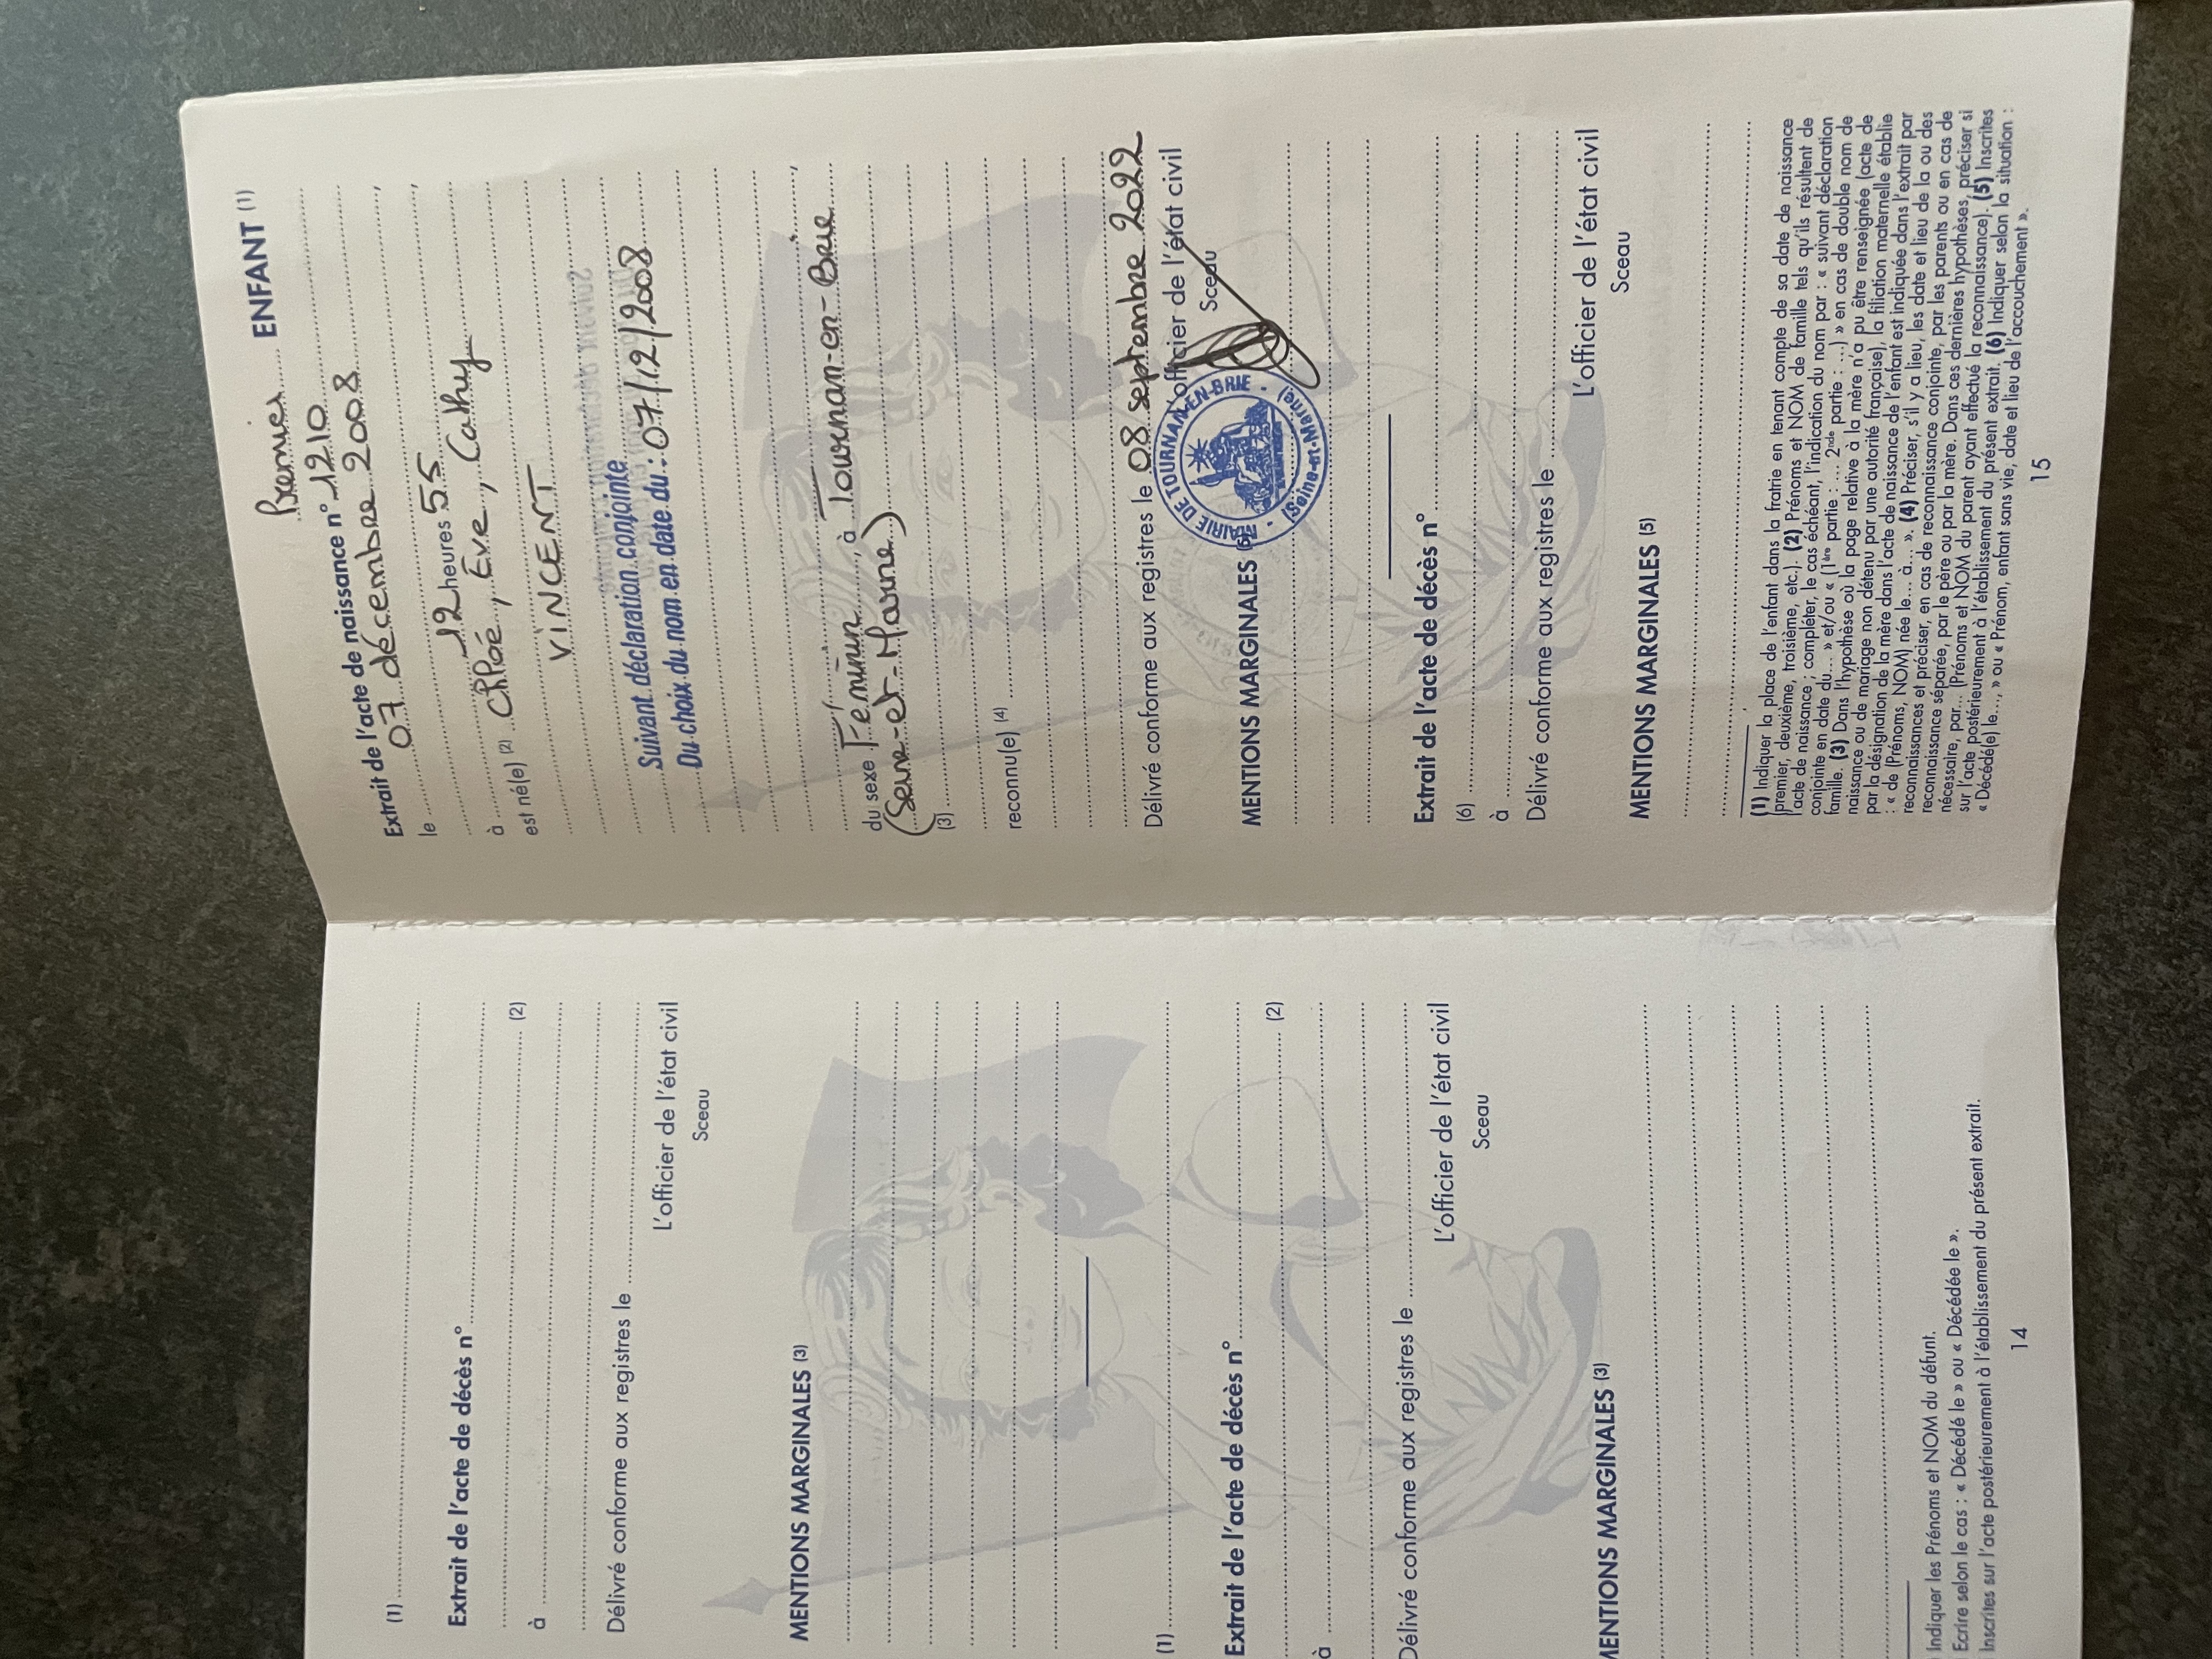 (1)
Extrait de l'acte de décès n°
(2)
à
Délivré conforme aux registres le
L'officier de l'état civil
Sceau
MENTIONS MARGINALES (3)
(1)
Extrait de l'acte de décès n°
(2)
à
Délivré conforme aux registres le
L'officier de l'état civil
Sceau
MENTIONS MARGINALES (3)
Indiquer les Prénoms et NOM du défunt.
Ecrire selon le cas : « Décédé le » ou « Décédée le ».
Inscrites sur l'acte postérieurement à l'établissement du présent extrait.
14
Premier ENFANT (1)
Extrait de l'acte de naissance n° 1210
le 07 décembre 2008
à 12 heures 55
est né(e) (2) Chloé, Ève, Cathy
VINCENT
Suivant déclaration conjointe
Du choix du nom en date du : 07/12/2008
du sexe Féminin, à Tournan-en-Brie
(Seine-et-Marne)
(3)
reconnu(e) (4)
Délivré conforme aux registres le 08 septembre 2022
L'officier de l'état civil
Sceau
MAIRIE DE TOURNAN-EN-BRIE
(Seine-et-Marne)
MENTIONS MARGINALES (5)
Extrait de l'acte de décès n°
(6)
à
Délivré conforme aux registres le
L'officier de l'état civil
Sceau
MENTIONS MARGINALES (5)
(1) Indiquer la place de l'enfant dans la fratrie en tenant compte de sa date de naissance
(premier, deuxième, troisième, etc.). (2) Prénoms et NOM de famille tels qu'ils résultent de
l'acte de naissance ; compléter, le cas échéant, l'indication du nom par : « suivant déclaration
conjointe en date du... » et/ou « (1ère partie : ... 2nde partie : ...) » en cas de double nom de
famille. (3) Dans l'hypothèse où la page relative à la mère n'a pu être renseignée (acte de
naissance ou de mariage non détenu par une autorité française), la filiation maternelle établie
par la désignation de la mère dans l'acte de naissance de l'enfant est indiquée dans l'extrait par
: « de (Prénoms, NOM) née le... à... ». (4) Préciser, s'il y a lieu, les date et lieu de la ou des
reconnaissances et préciser, en cas de reconnaissance conjointe, par les parents ou en cas de
reconnaissance séparée, par le père ou par la mère. Dans ces dernières hypothèses, préciser si
nécessaire, par... (Prénoms et NOM du parent ayant effectué la reconnaissance). (5) Inscrites
sur l'acte postérieurement à l'établissement du présent extrait. (6) Indiquer selon la situation :
« Décédé(e) le..., » ou « Prénom, enfant sans vie, date et lieu de l'accouchement ».
15